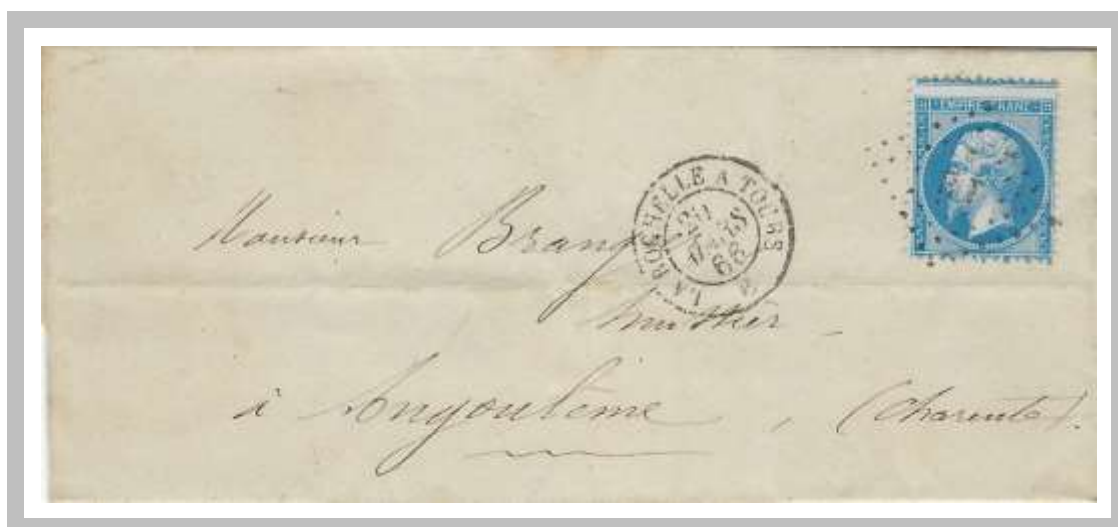 EMPIRE FRANC
LA ROCHELLE A TOURS
MARS
66
Monsieur
huissier
à Angoulême, (Charente).